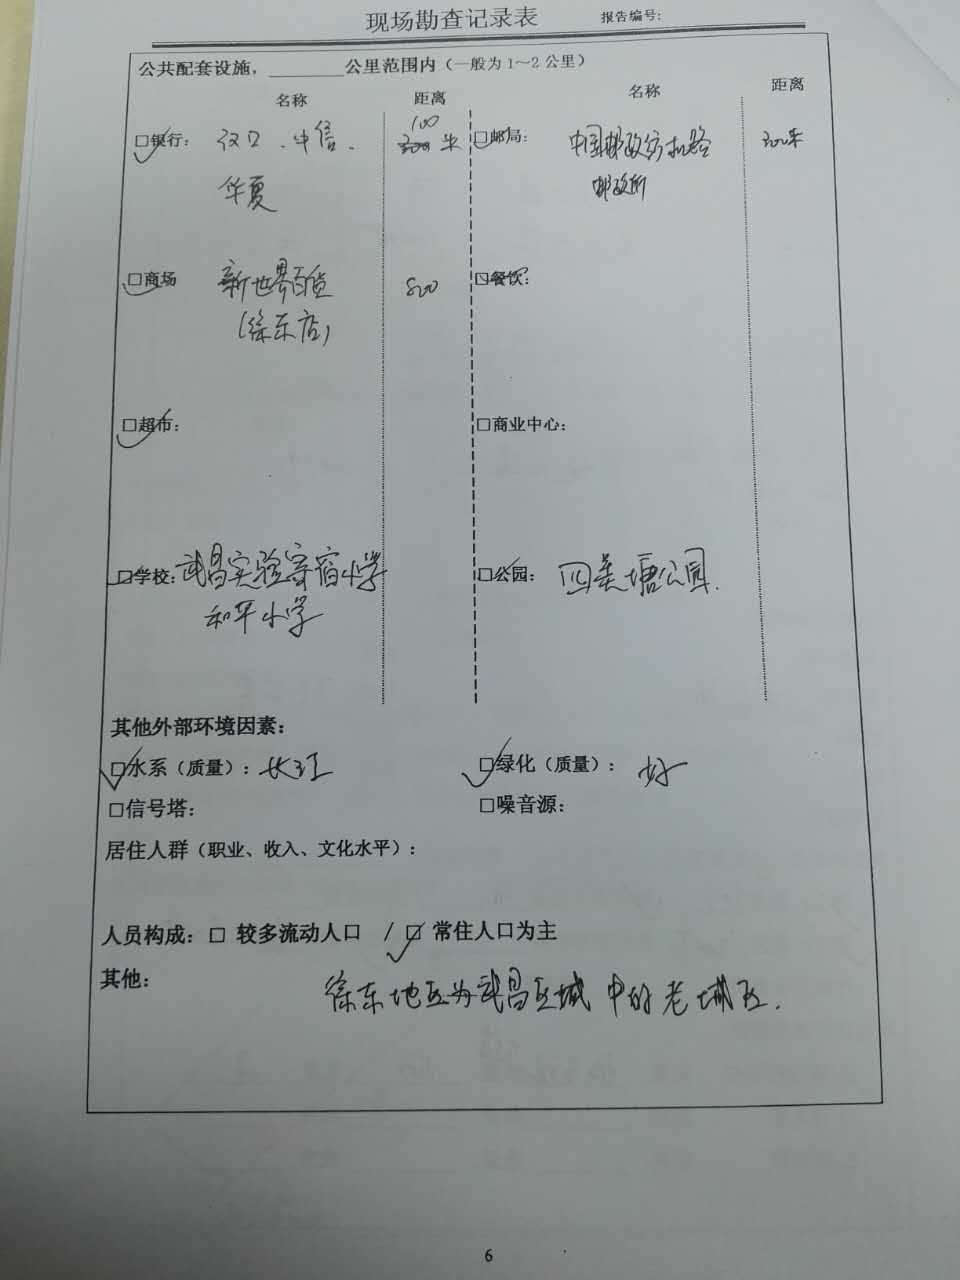 现场勘查记录表 报告编号:
公共配套设施，________公里范围内（一般为1～2公里）
名称 距离 名称 距离
100
□银行： 汉口、中信、 300 米 □邮局： 中国邮政纺机路 300米
华夏 邮政所
□商场 新世界百货 500 □餐饮：
（徐东店）
□超市： □商业中心：
□学校： 武昌实验寄宿小学 □公园： 四美塘公园.
和平小学
其他外部环境因素：
□水系（质量）： 长江 □绿化（质量）： 好
□信号塔： □噪音源：
居住人群（职业、收入、文化水平）：
人员构成： □ 较多流动人口 / □ 常住人口为主
其他：
徐东地区为武昌区域中的老城区.
6